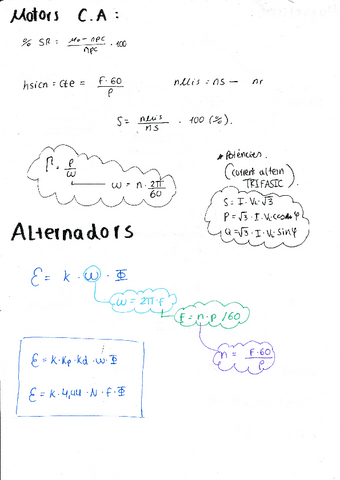 Motors C.A:
% SR = (no - npc / npc) · 100
nsicn = cte = f · 60 / p
nllis = ns - nr
S = nllis / ns · 100 (%).
Γ = P / ω
ω = n · 2π / 60
* Potències.
(current altern
TRIFASIC)
S = I · VL · √3
P = √3 · I · VL · cos φ
Q = √3 · I · VL · sin φ
Alternadors
ε = k · ω · Φ
ω = 2π · f
f = n · p / 60
n = f · 60 / p
ε = k · kp · kd · ω · Φ
ε = k · 4,44 · N · f · Φ